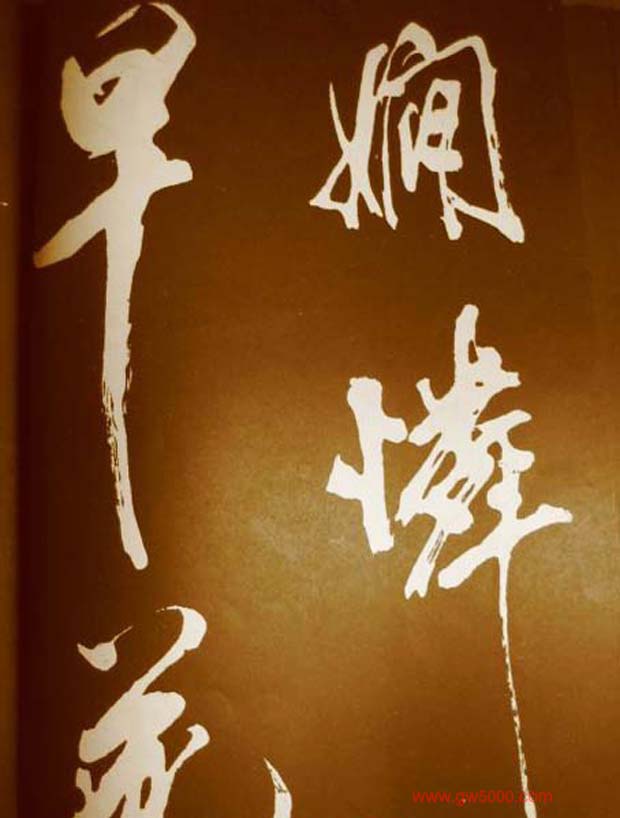 嫺憐
早
www.gw5000.com